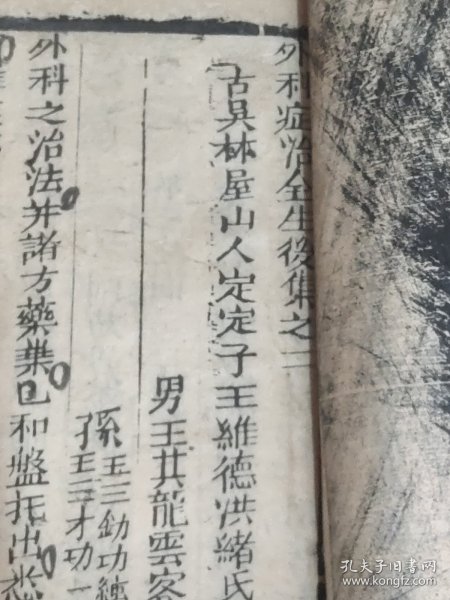 外科症治全生後集之二
古吳林屋山人定定子王維德洪緒氏
男王其龍雲客
孫王三錫功
孫王三才功一
外科之治法并諸方藥業已和盤托出
孔夫子旧书网
www.kongfz.com